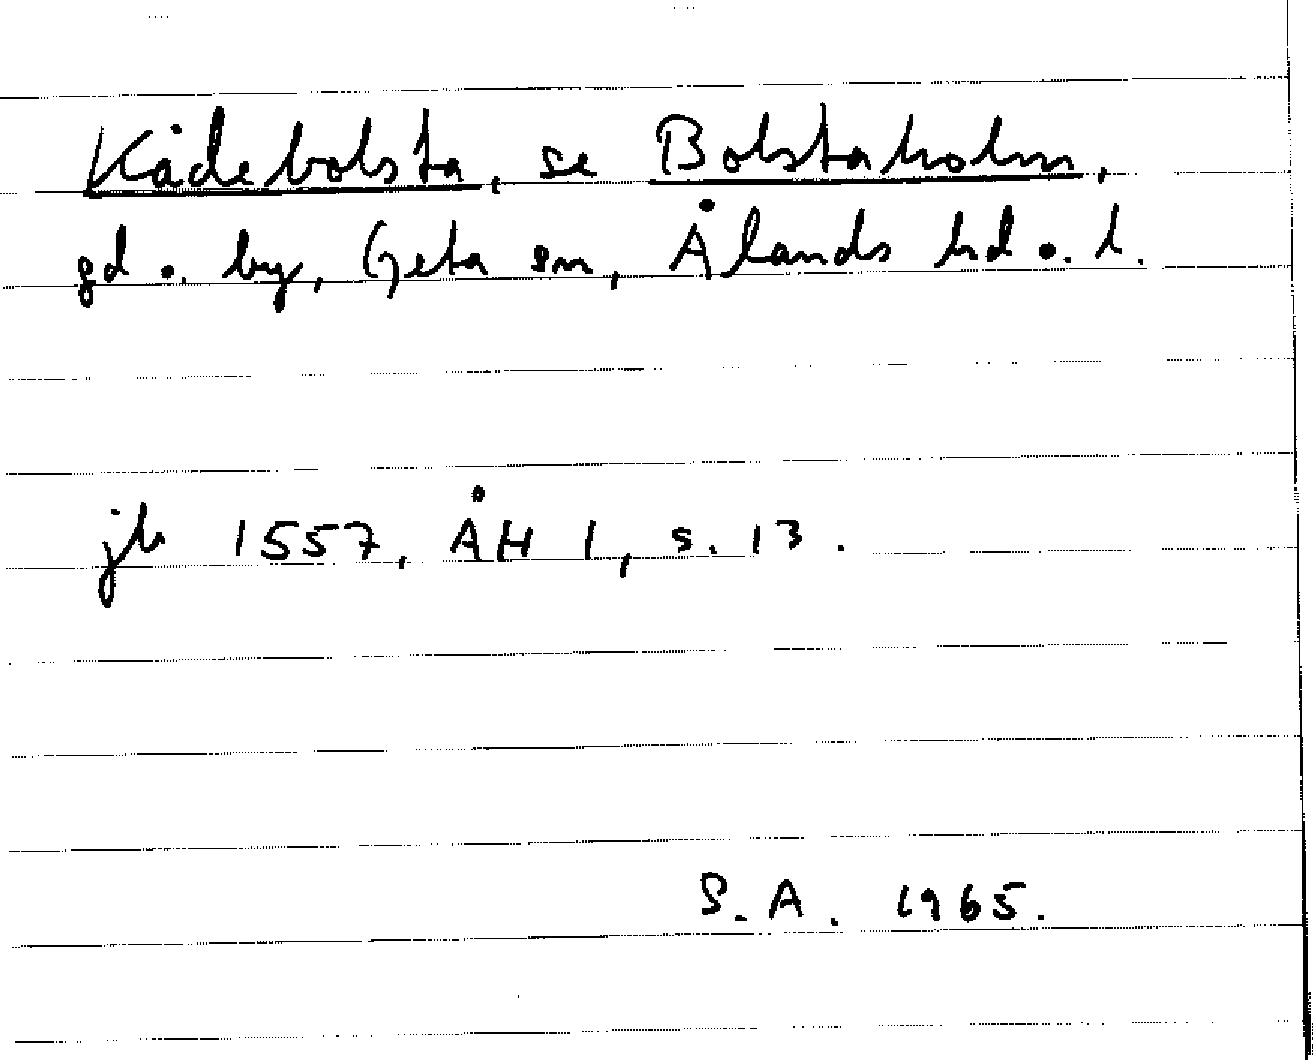 Kådebolsta, se Bolstaholm,
gd o. by, Geta sn, Ålands hd o. l.
jb 1557, ÅH 1, s. 13.
S. A. 1965.